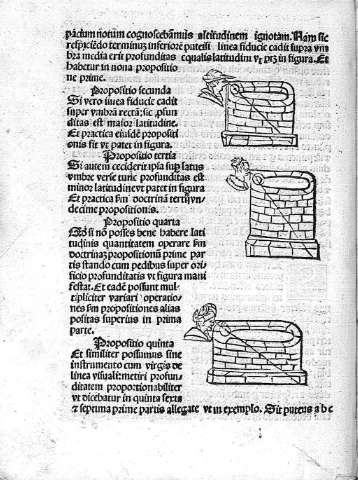 pactum notum cognoscebamus altitudinem ignotam. Nam sic
respiciēdo terminū inferiorē putei si linea fiducie cadit supra vm
bra media erit profunditas equalis latitudini vt ptz in figura. Et
habetur in nona propositio
ne prime.
Propositio secunda
Si vero linea fiducie cadit
super vmbrā rectā: sic ꝓfun
ditas est maior latitudine.
Et practica eiusdē propositi
onis sit vt patet in figura.
Propositio tertia
Si autem ceciderit ipsa sup latus
vmbre verse tunc profunditas est
minor latitudine vt patet in figura
Et practica fm doctrinā tertie vn
decime propositionis.
Propositio quarta
si nō posses bene habere lati
tudinis quantitatem operare fm
doctrinaz propositionum prime par
tis stando cum pedibus super ori
ficio profunditatis vt figura mani
festat. Et eadē possunt mul
tipliciter variari operatio
nes fm propositiones alias
positas superius in prima
parte.
Propositio quinta
Et similiter possumus sine
instrumento cum virgis de
linea visuali metiri profun
ditatem proportionabiliter
vt dicebatur in quinta sexta
⁊ septima prime partis allegate vt in exemplo. Sit puteus a b c